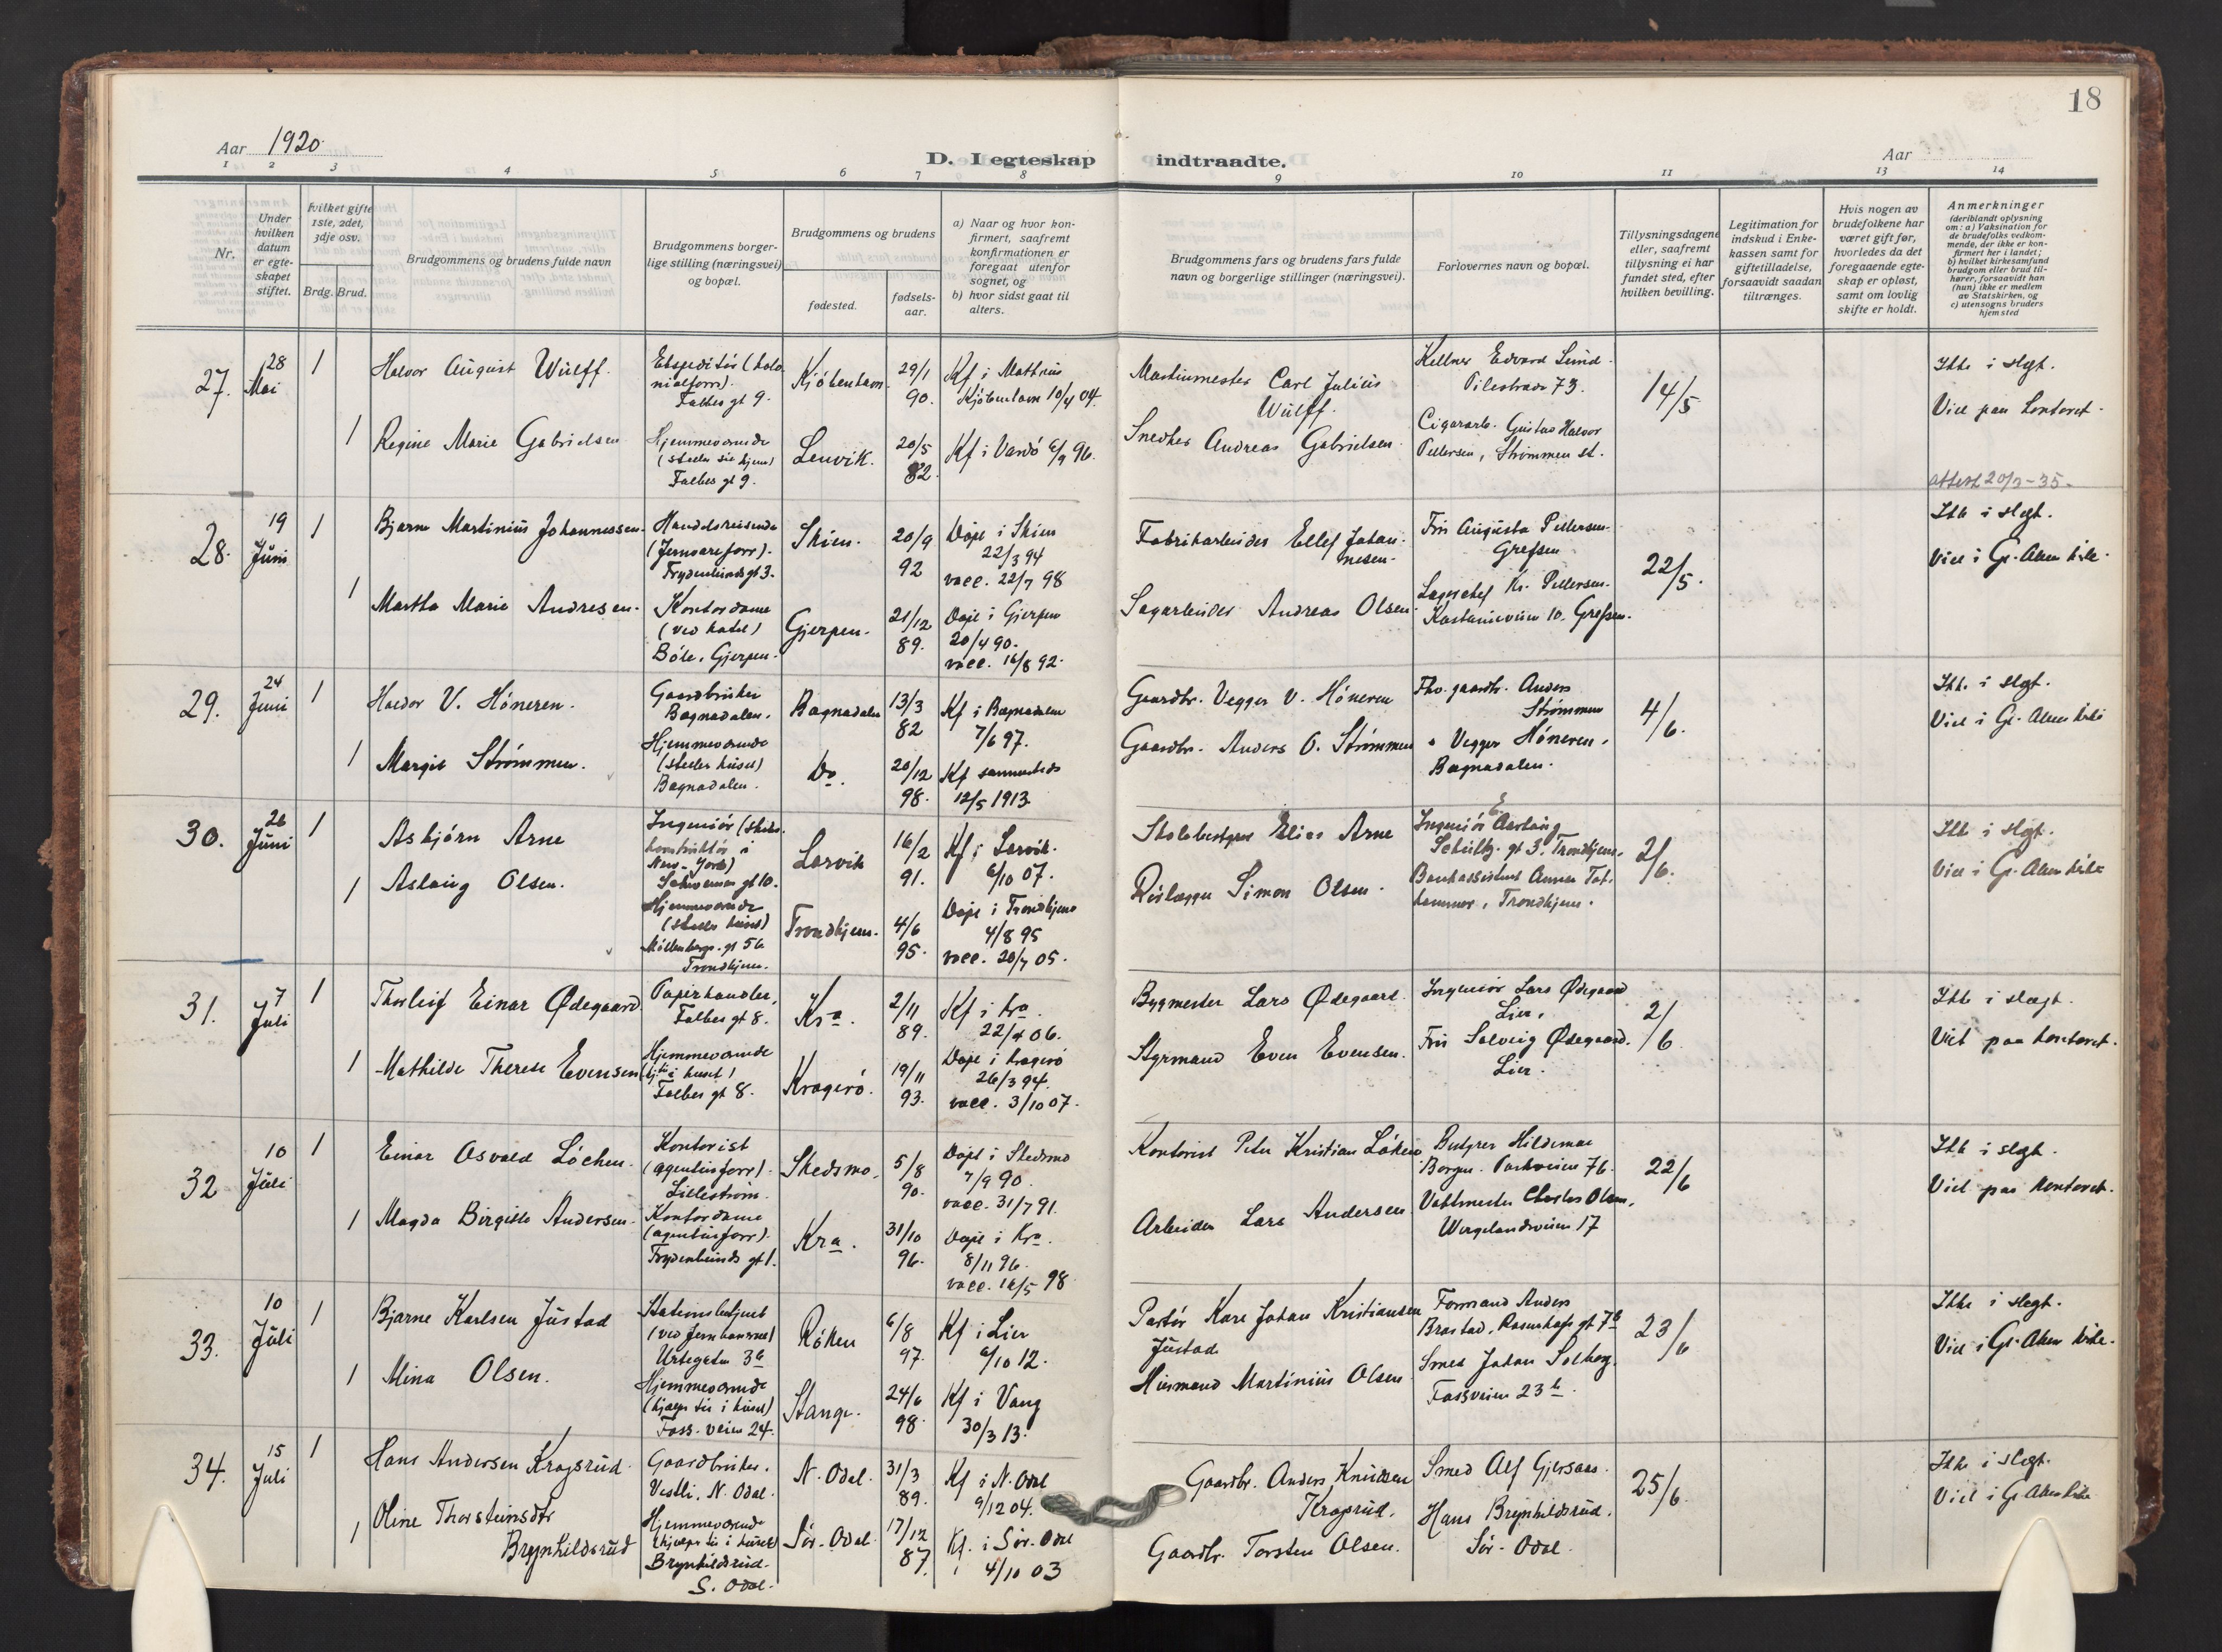 18
Aar 1920.
D. I egteskap indtraadte.
Aar
1 2 3 4 5 6 7 8 9 10 11 12 13 14
Nr.
Under hvilken datum er egteskapet stiftet.
Hvilket gifte 1ste, 2det, 3dje osv.
Brdg. Brud.
Brudgommens og brudens fulde navn
Brudgommens borgerlige stilling (næringsvei) og bopæl.
Brudgommens og brudens
fødested.
fødselsaar.
a) Naar og hvor konfirmert, saafremt konfirmationen er foregaat utenfor sognet, og
b) hvor sidst gaat til alters.
Brudgommens fars og brudens fars fulde navn og borgerlige stillinger (næringsvei).
Forlovernes navn og bopæl.
Tillysningsdagene eller, saafremt tillysning ei har fundet sted, efter hvilken bevilling.
Legitimation for indskud i Enkekassen samt for giftetilladelse, forsaavidt saadan tiltrænges.
Hvis nogen av brudefolkene har været gift før, hvorledes da det foregaaende egteskap er opløst, samt om lovlig skifte er holdt.
Anmerkninger
(deriblandt oplysning om: a) Vaksination for de brudefolks vedkommende, der ikke er konfirmert her i landet; b) hvilket kirkesamfund brudgom eller brud tilhører, forsaavidt han (hun) ikke er medlem av Statskirken, og c) utensogns bruders hjemsted
27. 28 Mai 1
Halvor August Wulff.
Falbes gt 9.
Kjöbenhavn.
29/1 90.
Kf i Matthæus
Kjöbenhavn 10/4 04.
Carl Julius
Wulff.
Kellner Edvard Lund.
Pilestræde 73.
14/5
Ikke i slegt.
Viet paa kontoret.
1 Regine Marie Gabrielsen
Hjemmeværende
Falbes gt 9.
Lenvik.
20/5 82.
Kf i Vardö 6/9 96.
Snedker Andreas Gabrielsen.
Cigararb. Gustav Halvor
Pettersen, Strömmen st.
attest 20/3-35.
28. 19 Juni 1
Bjarne Martinius Johannessen.
Handelsreisende
(Jernvareforr).
Frydenlunds gt 3.
Skien.
20/9 92
Döpt i Skien
22/3 94
vacc. 22/7 98
Fabrikarbeider Ellef Johannesen.
Frk Augusta Pettersen.
Grefsen
22/5.
Ikke i slegt.
Viet i Gl. Aker kirke.
1 Martha Marie Andresen.
Kontordame
(ved hotel)
Böle, Gjerpen.
Gjerpen.
21/12 89.
Döpt i Gjerpen
20/4 90.
vacc. 16/8 92.
Sagarbeider Andreas Olsen.
Lagerchef Kr. Pettersen.
Kastanieveien 10. Grefsen.
29. 24 Juni 1
Haldor V. Höneren.
Gaardbruker
Bagnadalen.
Bagnadalen
13/3 82
Kf i Bagnadalen
7/6 97.
Gaardbr. Vegger V. Höneren
Fhv. gaardbr. Anders
Strömmen
4/6.
Ikke i slegt.
Viet i Gl. Aker kirke
1 Margit Strömmen.
Hjemmeværende
(steller huset)
Bagnadalen.
Do.
20/12 98.
Kf sammesteds
12/5 1913.
Gaardbr. Anders O. Strömmen
" Vegger Höneren,
Bagnadalen.
30. 26 Juni 1
Asbjörn Arne
Ingeniör
New-York)
Larvik
16/2 91.
Kf i Larvik.
6/10 07.
Elias Arne
Ingeniör E. Aarhaug
Schultz. gt 3, Trondhjem.
2/6.
Ikke i slegt.
Viet i Gl. Aker kirke
1 Aslaug Olsen.
Hjemmeværende
(steller huset)
Möllenbergs. gt 56
Trondhjem.
Trondhjem.
4/6 95.
Döpt i Trondhjem
4/8 95
vacc. 20/7 05.
Rörlægger Simon Olsen.
Trondhjem.
31. 7 Juli 1
Thorleif Einar Ødegaard
Papirhandler,
Falbes gt 8.
Kra.
2/11 89.
Kf i Kra
22/4 06.
Bygmester Lars Ødegaard.
Ingeniør Lars Ødegaard
Lier.
2/6
Ikke i slægt.
Viet paa kontoret.
1 Mathilde Therese Evensen
Hjemmeværende
Falbes gt 8.
Kragerö.
19/11 93.
Döpt i Kragerö
26/3 94.
vacc. 3/10 07.
Styrmand Even Evensen.
Frk Solveig Ødegaard.
Lier.
32 10 Juli 1
Einar Osvald Löchen.
Kontorist
(agenturforr).
Lilleström.
Skedsmo.
5/8 90.
Döpt i Skedsmo
7/9 90.
vacc. 31/7 91.
Kontorist Peter Kristian Löken
Hildemar
Borgen. Parkveien 76.
22/6
Ikke i slegt.
Viet paa kontoret.
1 Magda Birgitte Andersen.
Kontordame
(agenturforr).
Frydenlunds gt 1.
Kra.
31/10 96.
Döpt i Kra.
8/11 96.
vacc. 16/5 98
Arbeider Lars Andersen
Vaktmester Charles Olsen,
Wergelandsveien 17
33. 10 Juli 1
Bjarne Karlsen Justad
Stationsbetjent
(ved Jernbanerne)
Urtegaten 3a
Röken
6/8 97.
Kf i Lier
6/10 12.
Karl Johan Kristiansen
Justad
Formand Anders
Brastad, Rosenhofs gt 7b
23/6
Ikke i slegt.
Viet i Gl. Aker kirke.
1 Mina Olsen.
Hjemmeværende
(hjælper til i huset)
Foss. veien 24.
Stange.
24/6 98.
Kf i Vang
30/3 13.
Husmand Martinius Olsen
Smed Johan Solberg.
Fossveien 23b.
34. 15 Juli 1
Hans Andersen Kragsrud.
Gaardbruker.
Vestli, N. Odal.
N. Odal.
31/3 89.
Kf i N. Odal
9/12 04.
Gaardbr. Anders Knudsen
Kragsrud.
Smed Alf Gjersaas.
25/6
Ikke i slegt.
Viet i Gl Aker kirke
1 Oline Thorsteinsdtr
Brynhildsrud
Hjemmeværende
(hjælper til i huset)
Brynhildsrud.
S. Odal.
Sör-Odal.
17/12 87.
Kf. i Sör-Odal
4/10 03
Gaardbr. Torsten Olsen.
Hans Brynhildsrud.
Sör-Odal.